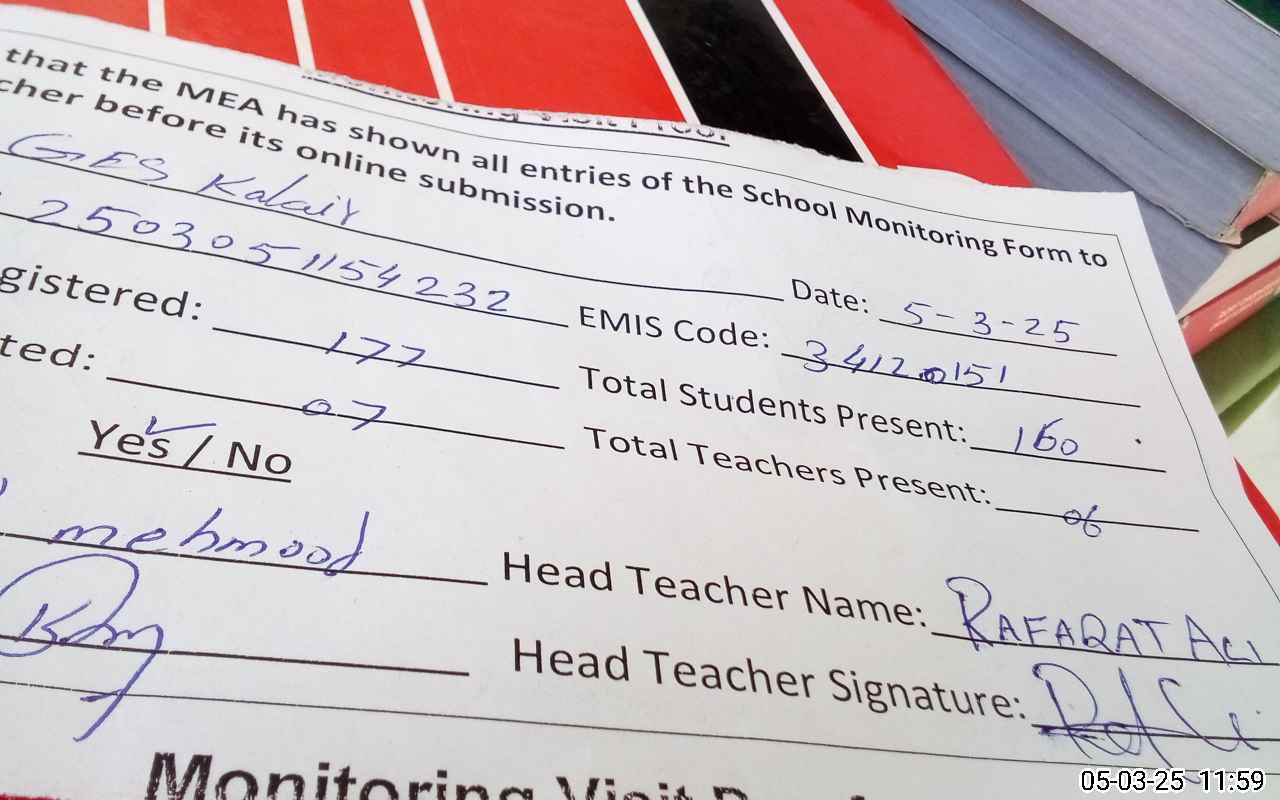 that the MEA has shown all entries of the School Monitoring Form to
cher before its online submission.
GES Kalair Date: 5-3-25
2503051154232 EMIS Code: 34120151
gistered: 177 Total Students Present: 160
ted: 07 Total Teachers Present: 06
Yes / No
mehmood Head Teacher Name: RAFAQAT ALI
Head Teacher Signature:
Monitoring Visit
05-03-25 11:59